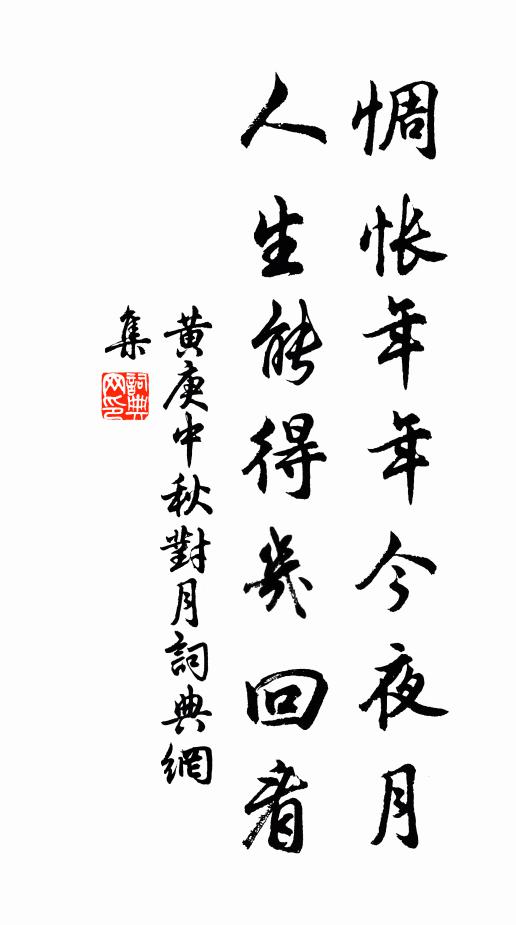 惆悵年年今夜月
人生能得幾回看
黄庚中秋對月詞典網
集
詞典
网印